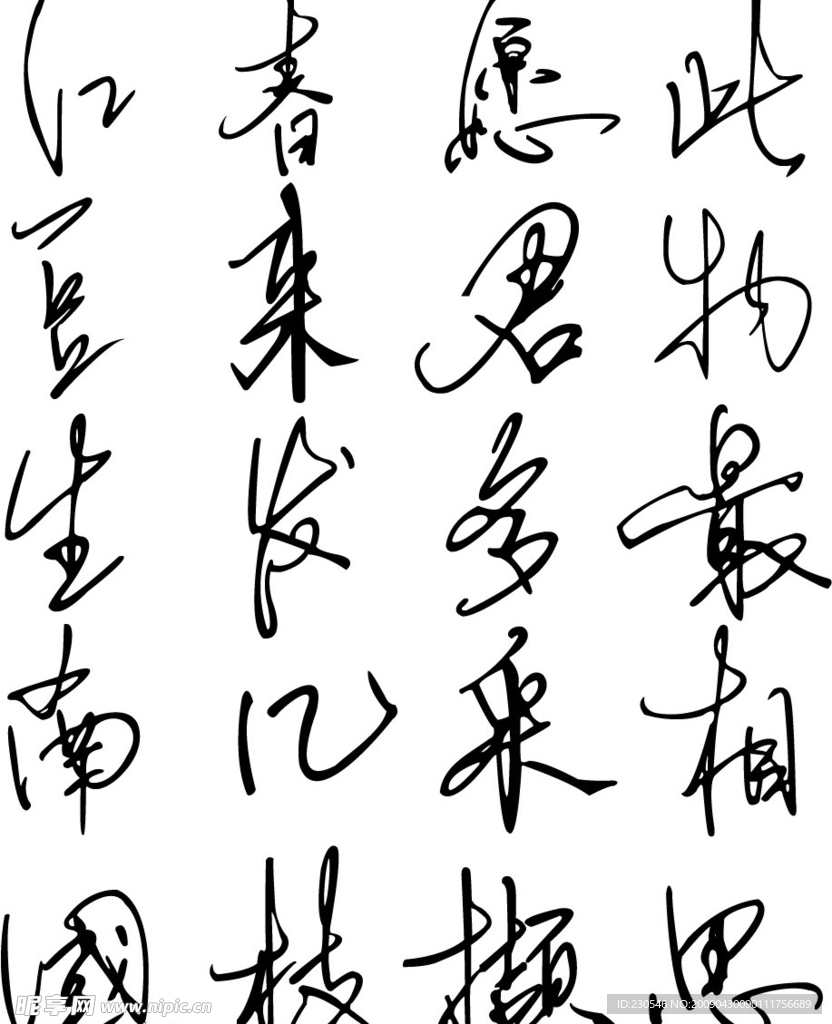 红豆生南國
春来发几枝
愿君多采撷
此物最相思
昵享网 www.nipic.cn
ID:230546 NO:20090430090111756689